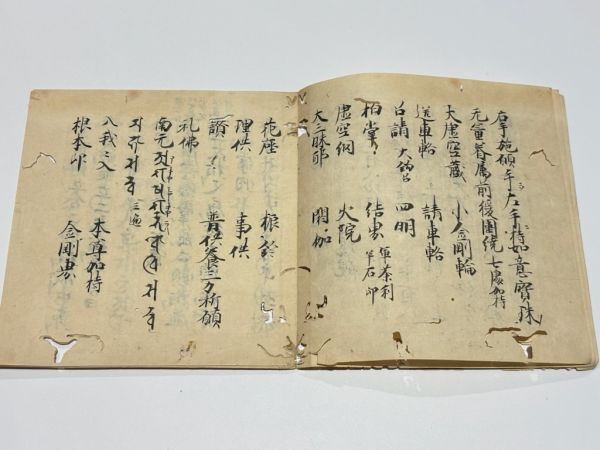 右手施願手左手持如意寶珠
无量眷属前後圍繞 七處加持
大虚空蔵 小金剛輪
送車輅 請車輅
召請 大鈎召 四明
拍掌 結界 軍荼利
羊石印
虚空網 火院
大三昧耶 閼伽
花座 振鈴
理供 事供
讃 普供養三力祈願
礼佛
南无
三遍
入我々入 本尊加持
根本印 金剛界